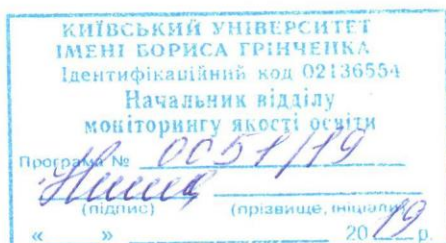 КИЇВСЬКИЙ УНІВЕРСИТЕТ
ІМЕНІ БОРИСА ГРІНЧЕНКА
Ідентифікаційний код 02136554
Начальник відділу
моніторингу якості освіти
Програма № 0051/19
(підпис) (прізвище, ініціали)
« » 20 19 р.